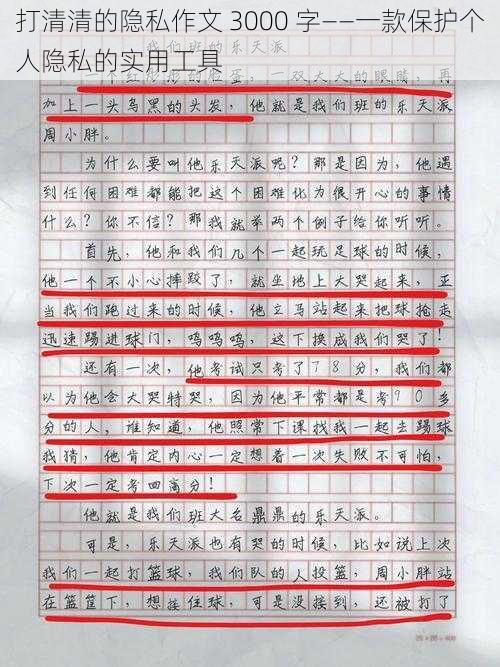 打清清的隐私作文 3000 字——一款保护个
人隐私的实用工具
我们班的乐天派
一个红彤彤的脸蛋，一双大大的眼睛，再
加上一头乌黑的头发，他就是我们班的乐天派
周小胖。
为什么要叫他乐天派呢？那是因为，他遇
到任何困难都能把这个困难化为很开心的事情
什么？你不信？那我就举两个例子给你听听。
首先，他和我们几个一起玩足球的时候，
他一个不小心摔跤了，就坐地上大哭起来，正
当我们跑过来的时候，他立马站起来把球抢走
迅速踢进球门，呜呜呜，这下换成我们哭了！
还有一次，他考试只考了78分，我们都
以为他会大哭特哭，因为他平常都是考90多
分的人，谁知道，他照常下课找我一起去踢球
我猜，他肯定内心一定想着一次失败不可怕，
下次一定考回高分！
他就是我们班大名鼎鼎的乐天派。
可是，乐天派也有哭的时候，比如说上次
我们一起打篮球，我们队的人投篮，周小胖站
在篮筐下，想接住球，可是没接到，还被打了